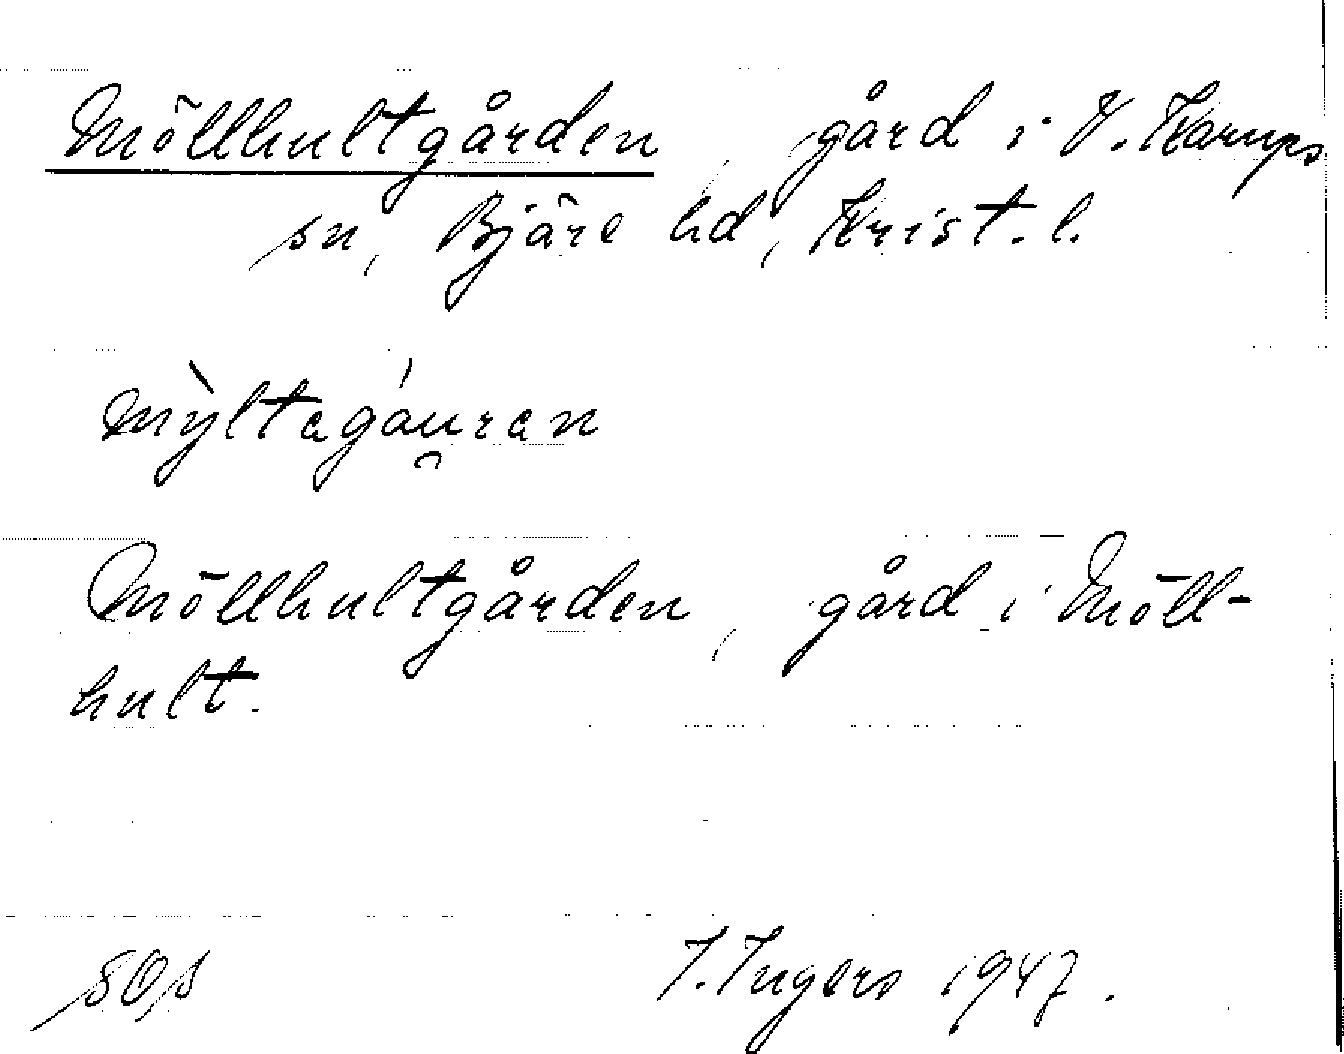 Möllhultgården, gård i V. Karups
sn, Bjäre hd, Krist. l.
mỳltagáu̯ran
Möllhultgården, gård i Möll-
hult.
SOs
I. Ingers 1947.